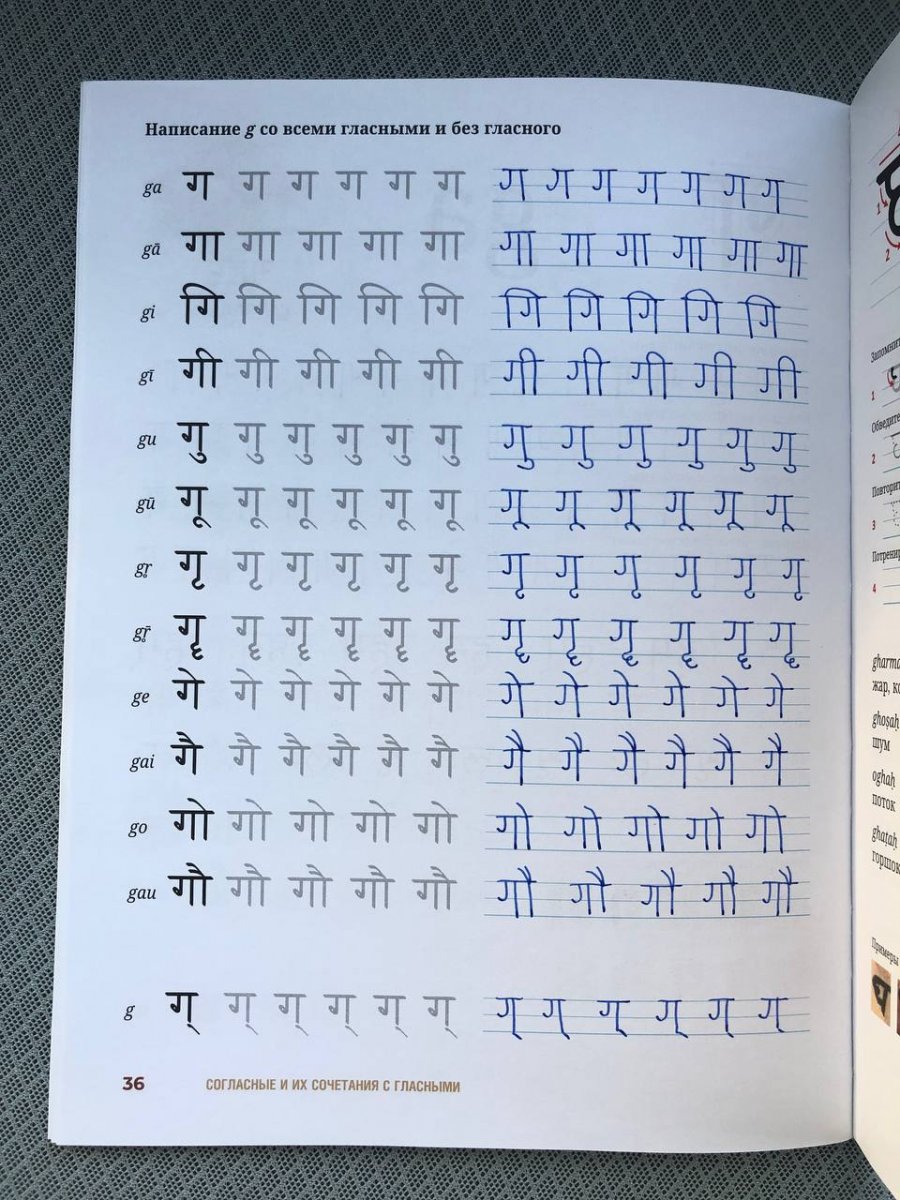 Написание g со всеми гласными и без гласного
ga ग ग ग ग ग ग ग ग ग ग ग ग ग
gā गा गा गा गा गा गा गा गा गा गा गा
gi गि गि गि गि गि गि गि गि गि गि
gī गी गी गी गी गी गी गी गी गी गी
gu गु गु गु गु गु गु गु गु गु गु गु गु
gū गू गू गू गू गू गू गू गू गू गू गू गू
gr̥ गृ गृ गृ गृ गृ गृ गृ गृ गृ गृ गृ गृ
gr̥̄ गॄ गॄ गॄ गॄ गॄ गॄ गॄ गॄ गॄ गॄ गॄ गॄ
ge गे गे गे गे गे गे गे गे गे गे गे गे
gai गै गै गै गै गै गै गै गै गै गै गै गै
go गो गो गो गो गो गो गो गो गो गो
gau गौ गौ गौ गौ गौ गौ गौ गौ गौ गौ
g ग् ग् ग् ग् ग् ग् ग् ग् ग् ग् ग् ग्
36 СОГЛАСНЫЕ И ИХ СОЧЕТАНИЯ С ГЛАСНЫМИ
1
2
1
2
3
4
жар
ghoṣaḥ
шум
oghaḥ
поток
ghaṭaḥ
горшок
Примеры
घ